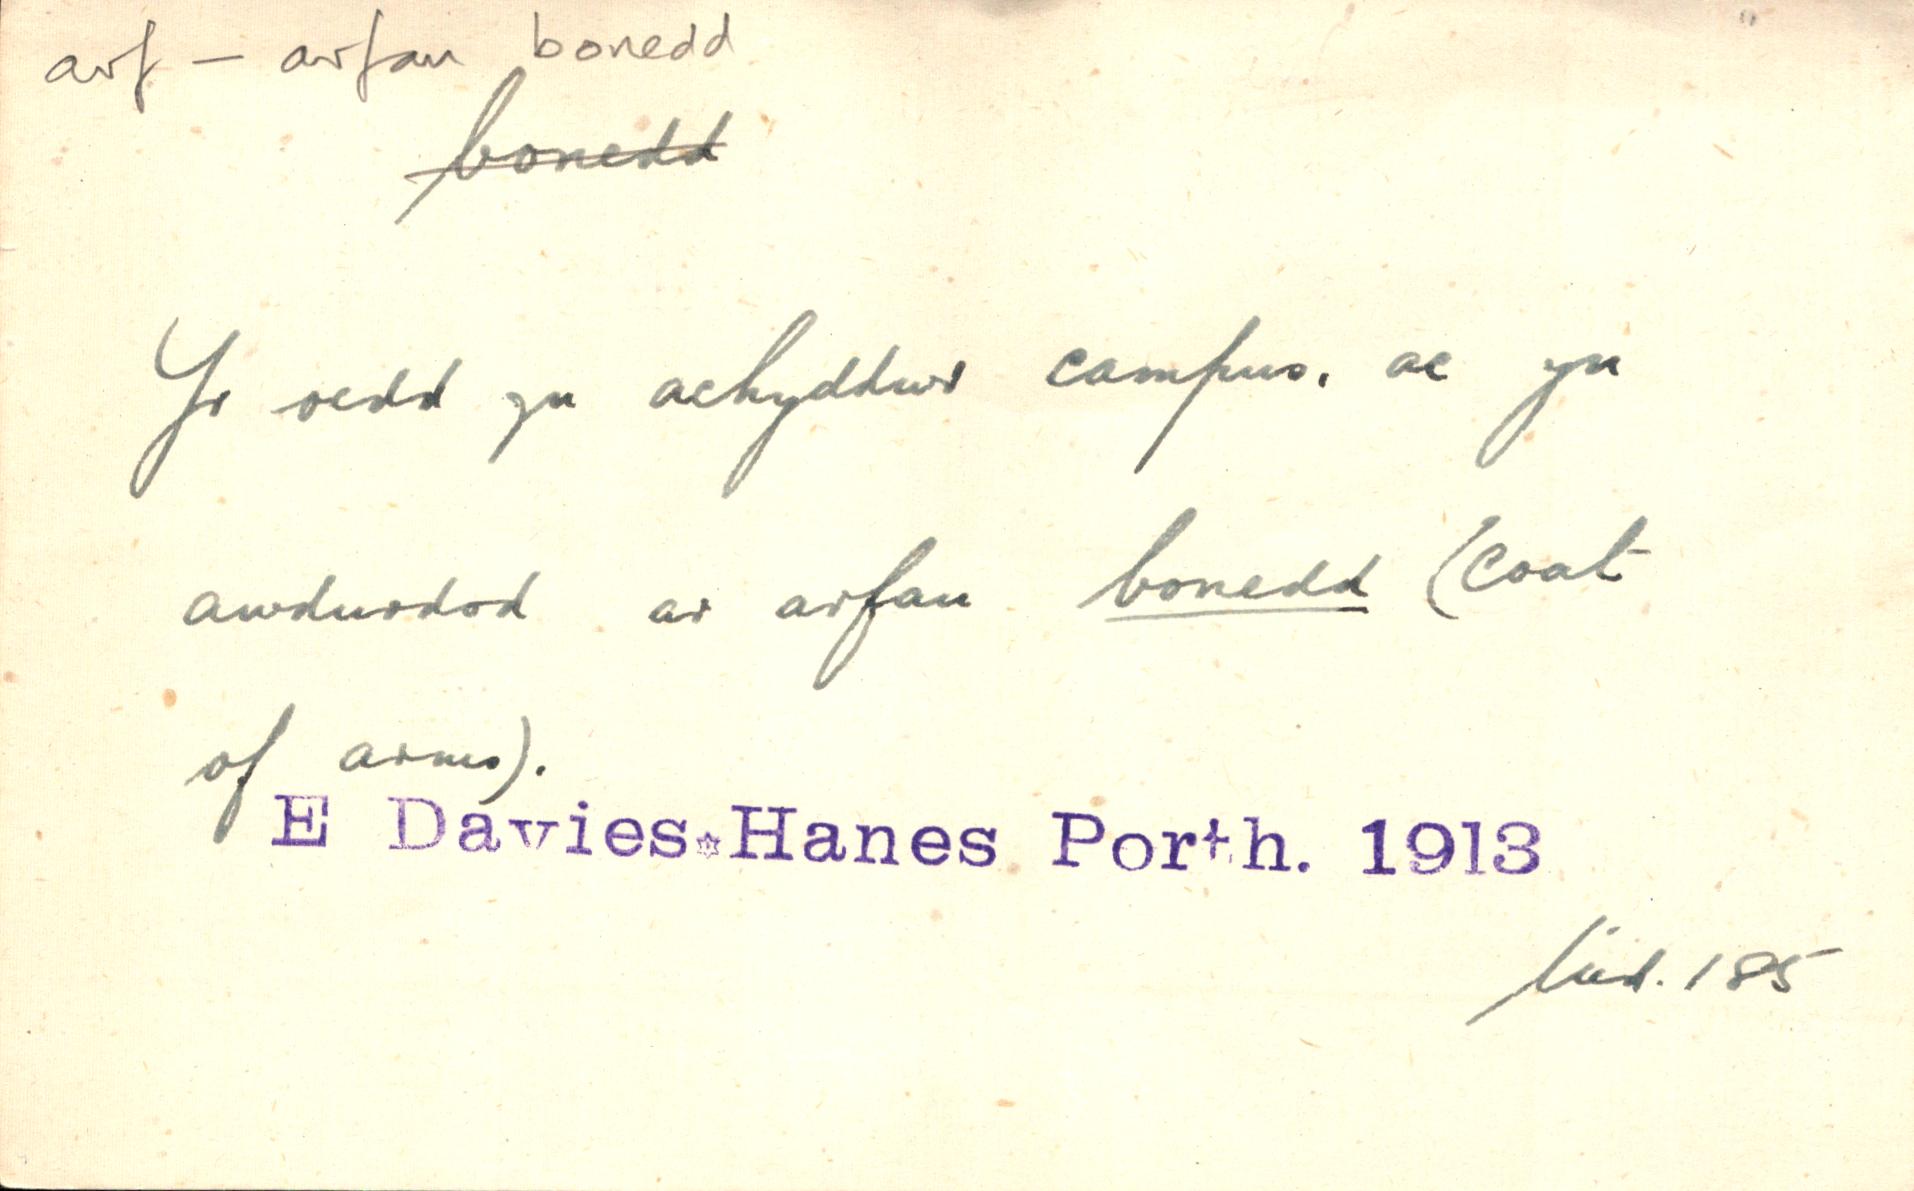 arf – arfau bonedd
bonedd
Yr oedd yn achyddwr campus, ac yn
awdurdod ar arfau bonedd (coat
of arms).
E Davies*Hanes Porth. 1913
tud. 185